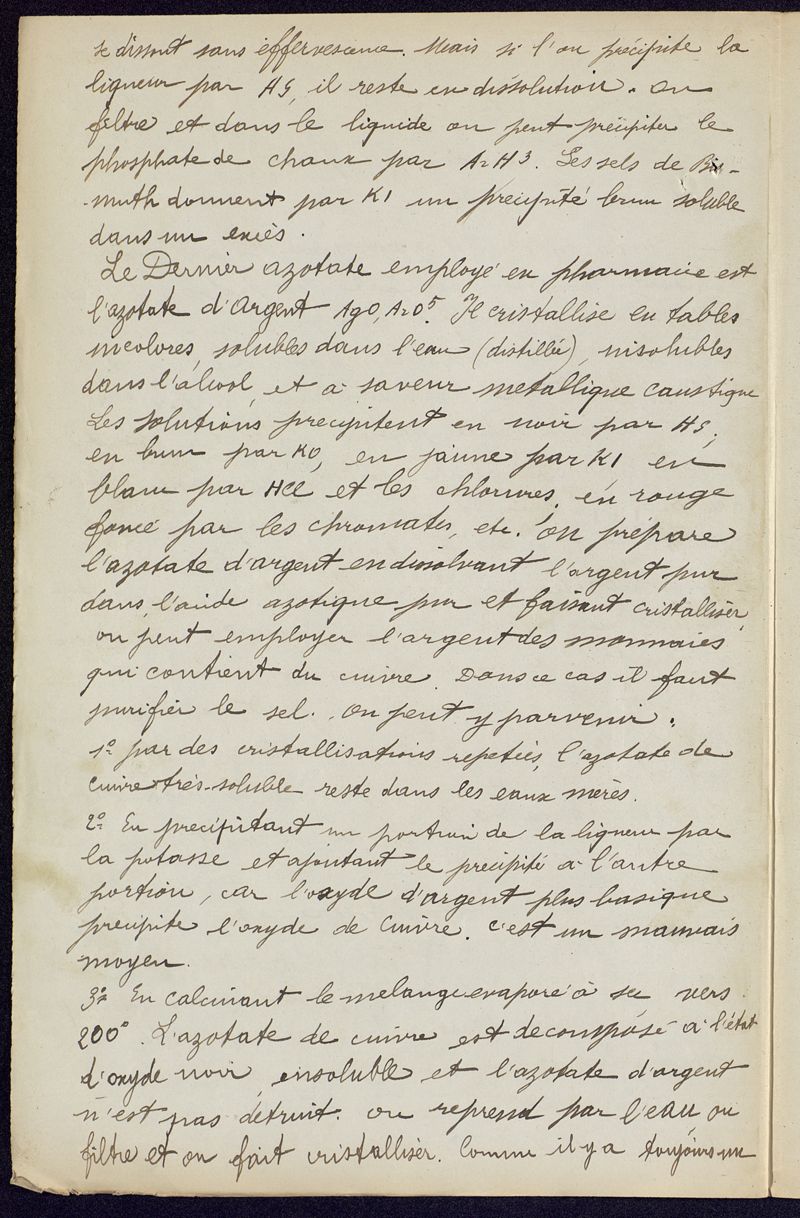 se dissout sans effervescence. Mais si l'on précipite la
liqueur par HS, il reste en dissolution. on
filtre et dans le liquide on peut précipiter le
phosphate de chaux par AzH3. Les sels de Bis-
-muth donnent par KI un precipité brun soluble
dans un excès.
Le Dernier azotate employé en pharmacie est
l'azotate d'Argent AgO, AzO5. Il cristallise en tables
incolores, solubles dans l'eau (distillée), insolubles
dans l'alcool, et à saveur metallique caustique
Les solutions precipitent en noir par HS,
en brun par KO, en jaune par KI en
blanc par HCl et les chlorures, en rouge
foncé par les chromates, etc. On prépare
l'azotate d'argent en dissolvant l'argent pur
dans l'acide azotique pur et faisant cristalliser,
on peut employer l'argent des monnaies
qui contient du cuivre. Dans ce cas il faut
purifier le sel. On peut y parvenir.
1º par des cristallisations repetées, l'azotate de
cuivre très-soluble reste dans les eaux mères.
2º En precipitant un portion de la liqueur par
la potasse et ajoutant le précipité à l'autre
portion, car l'oxyde d'argent plus basique
precipite l'oxyde de cuivre. c'est un mauvais
moyen.
3º En calcinant le melange evaporé à sec vers
200º. L'azotate de cuivre est decomposé à l'état
d'oxyde noir, insoluble et l'azotate d'argent
n'est pas détruit. on reprend par l'eau, on
filtre et on fait cristalliser. Comme il y a toujours un